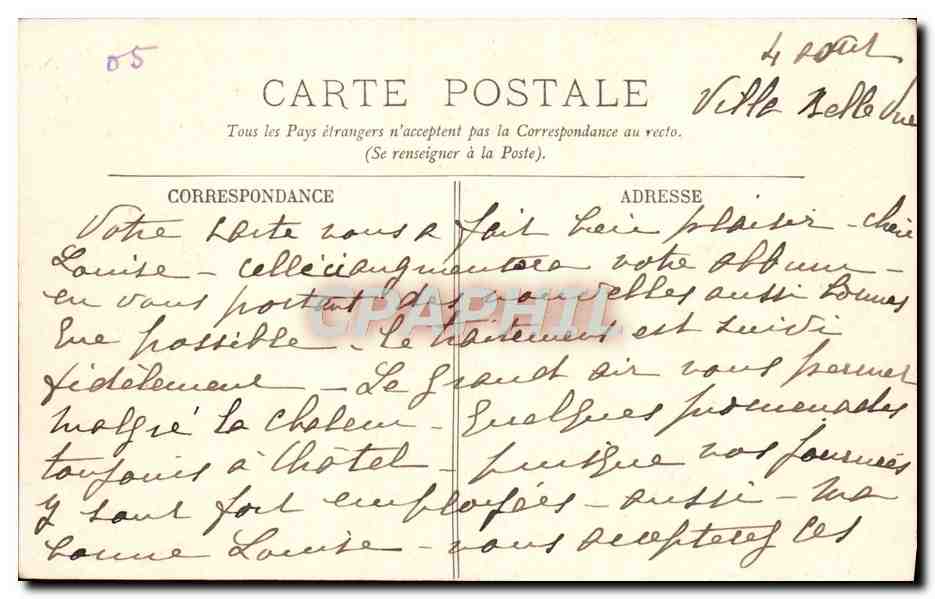 05
4 août
Villa Belle Vue
CARTE POSTALE
Tous les Pays étrangers n'acceptent pas la Correspondance au recto.
(Se renseigner à la Poste).
CORRESPONDANCE
ADRESSE
Votre carte nous a fait bien plaisir - chère
Louise - celle ci augmentera votre album -
en vous portant des nouvelles aussi bonnes
que possible - le traitement est suivi
fidèlement - Le grand air nous permet
malgré la chaleur - quelques promenades
toujours à Châtel - puisque nos journées
y sont fort employées - aussi - ma
bonne Louise - vous accepterez ces
CPAPHIL